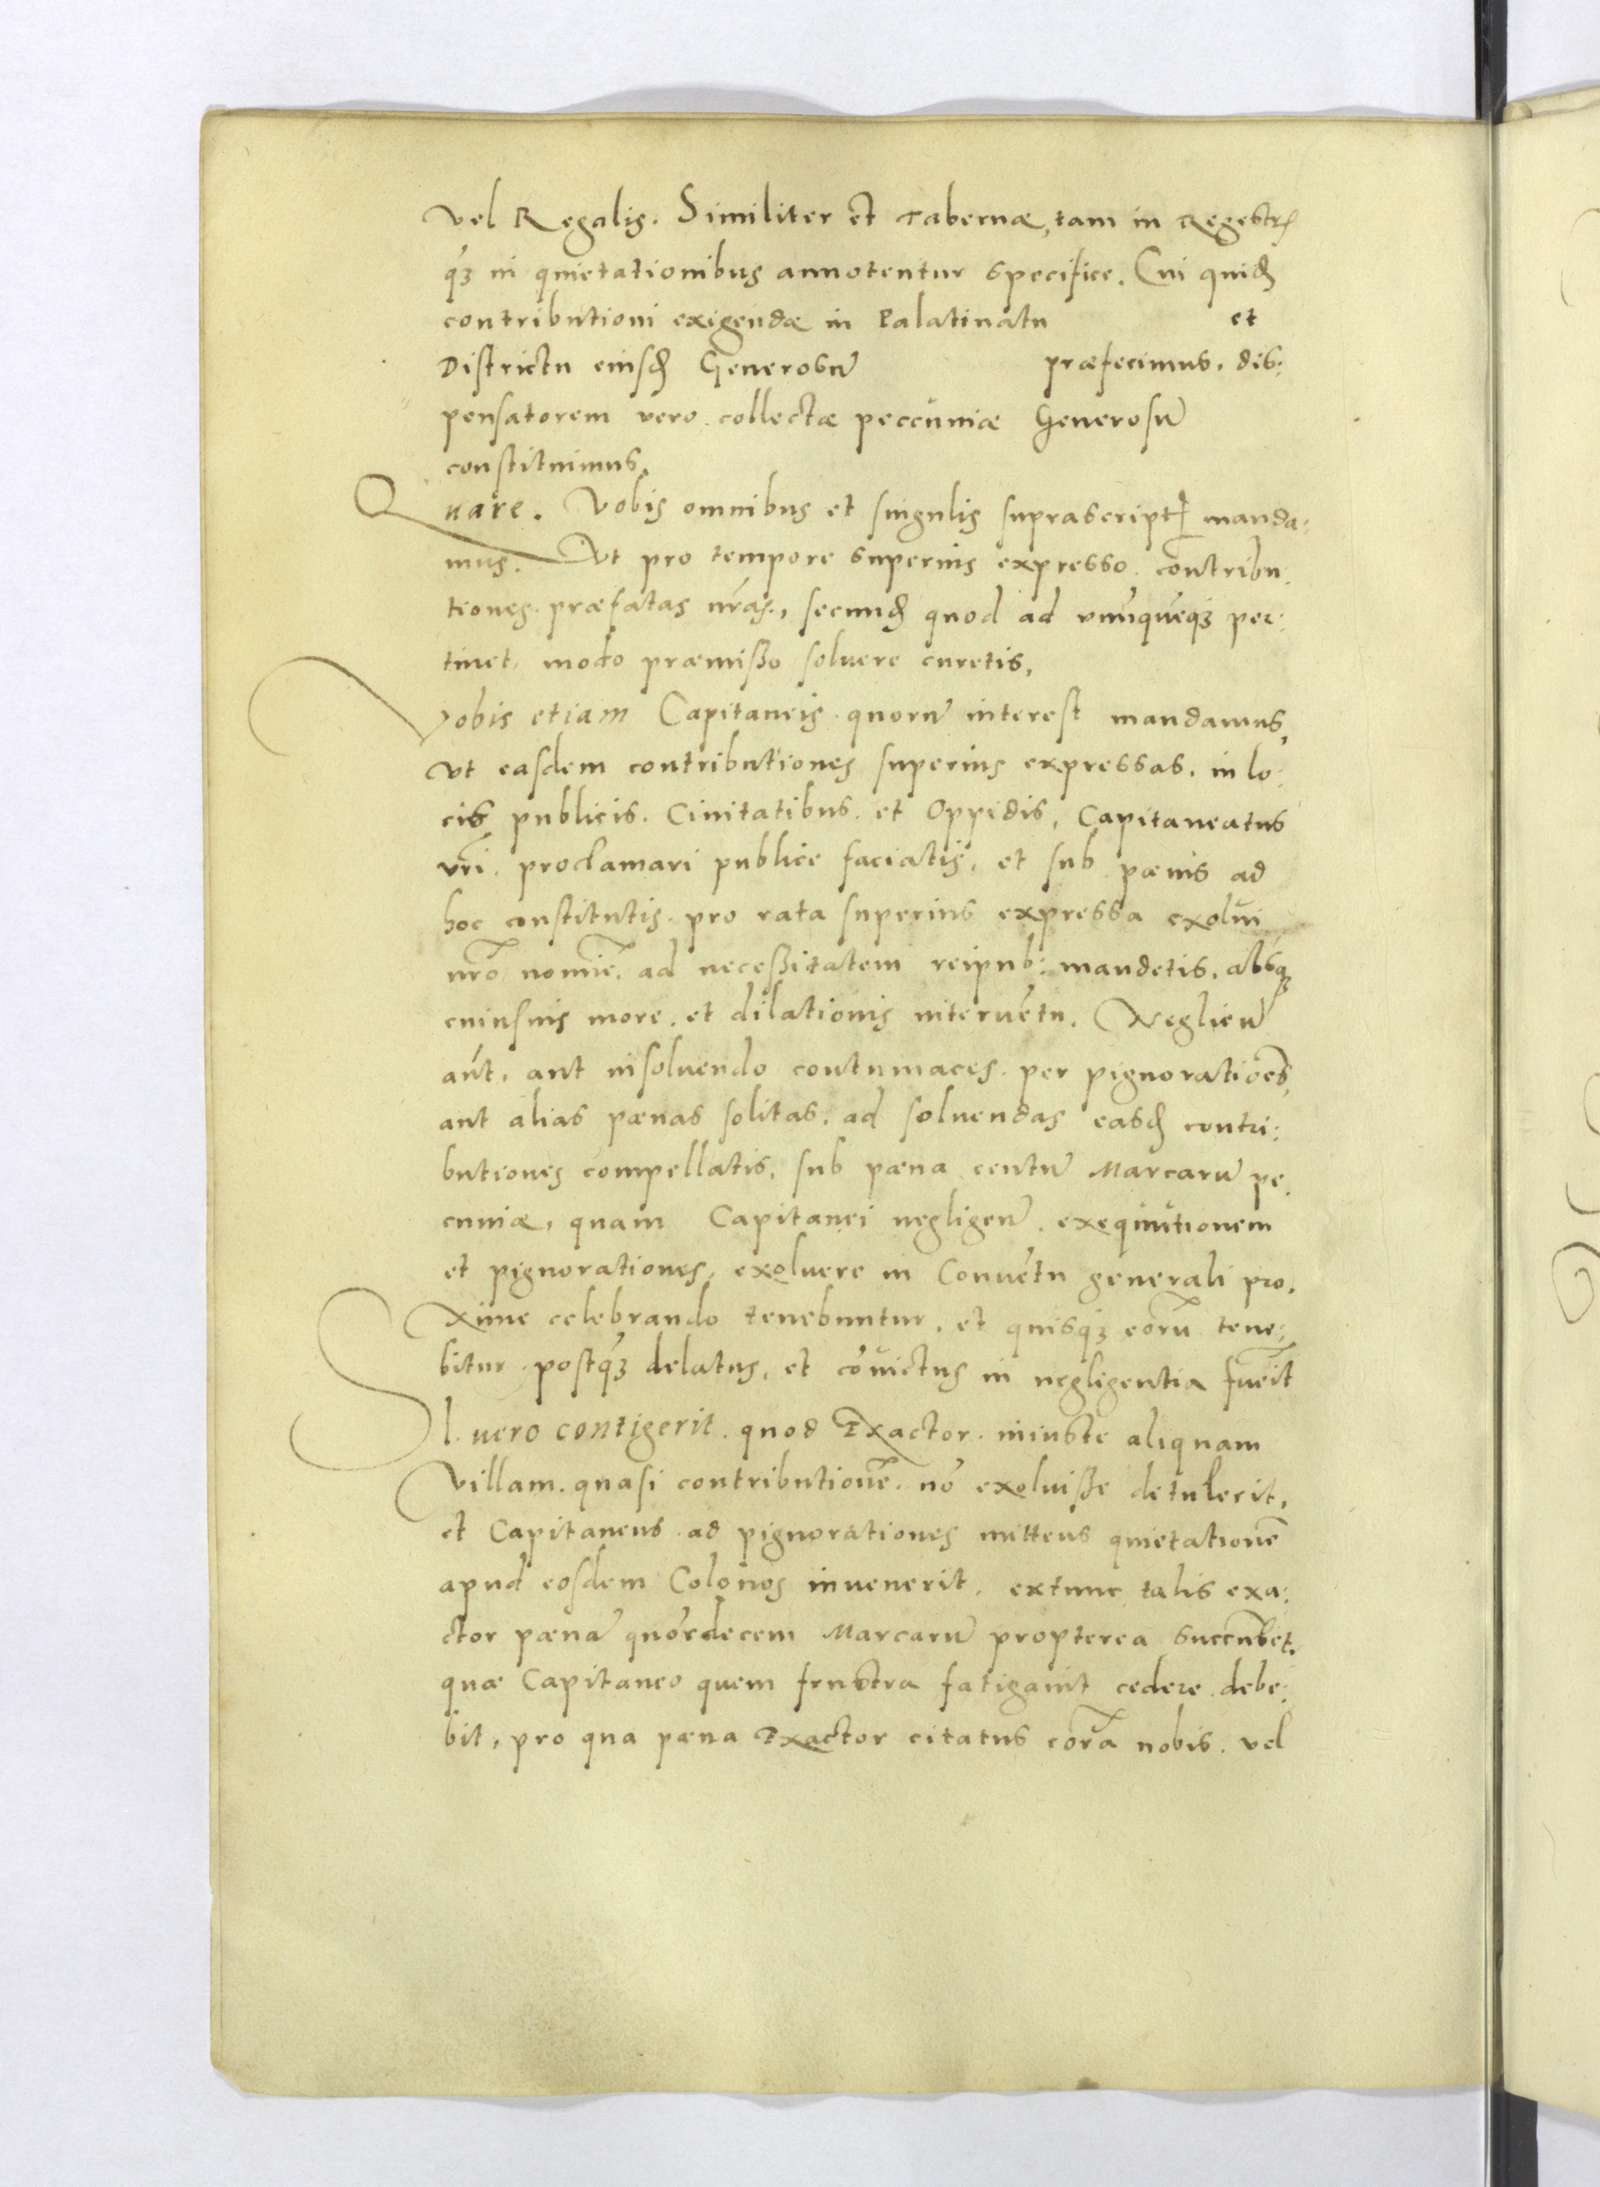 Vel Regalis. Similiter et Tabernæ, tam in Regestris
qȝ in quietationibus annotentur specifice. Cui quidē
contributioni exigendæ in Palatinatu et
Districtu eiusdē Generosū præfecimus. dis:
pensatorem vero collectæ peccuniæ Generosū
constituimus.
Quare. Vobis omnibus et singulis suprascriptis manda:
mus. Vt pro tempore superius expresso contribu:
tiones præfatas nr̃as, secundū quod ad vnūquēqȝ per:
tinet, modo præmißo soluere curetis,
Vobis etiam Capitaneis quorū interest mandamus,
vt easdem contributiones superius expressas, in lo:
cis publicis. Ciuitatibus. et Oppidis, Capitaneatus
vr̃i. proclamari publice faciatis, et sub pænis ad
hoc constitutis. pro rata superius expressa exolui
nr̃o noīe. ad neceßitatem reipub: mandetis, absqȝ
cuiusuis more. et dilationis interuētu. Negliēn̄
aūt, aut in soluendo contumaces. per pignorationēs,
aut alias pænas solitas, ad soluendas easdē contri:
butiones compellatis, sub pæna centū Marcarū pe:
cuniæ, quam Capitanei negligen̄. exequutionem
et pignorationes, exoluere in Conuētu generali pro:
xime celebrando tenebuntur, et quisqȝ eorū tene:
bitur. postqȝ delatus, et cōuictus in negligentia fuēit
SI. vero contigerit. quod Exactor. iniuste aliquam
Villam. quasi contributionē. nō exoluiße detulerit,
et Capitaneus ad pignorationes mittens quietationē
apud eosdem Colonos inuenerit. extunc talis exa:
ctor pænā quōrdecem Marcarū propterea succūbet.
quæ Capitaneo quem frustra fatigauit cedere debe:
bit, pro qua pæna Exactor citatus corā nobis. vel